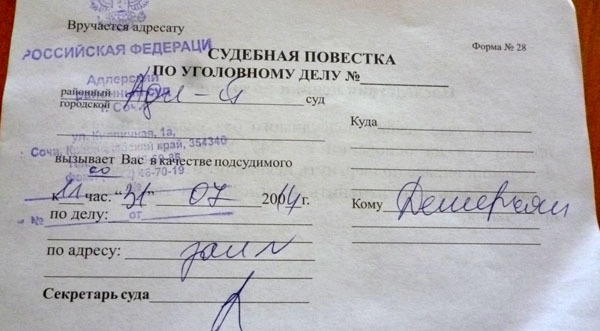 Вручается адресату
Форма № 28
РОССИЙСКАЯ ФЕДЕРАЦИ
СУДЕБНАЯ ПОВЕСТКА
ПО УГОЛОВНОМУ ДЕЛУ №
Адлерский
районный суд
г. Сочи
районный
городской
суд
Куда
ул. Кирпичная, 1а,
Сочи, Краснодарский край, 354340
вызывает Вас в качестве подсудимого
46-70-19
к 11 00 час. "31" 07 2014 г.
Кому
№ от
по делу:
по адресу:
Секретарь суда